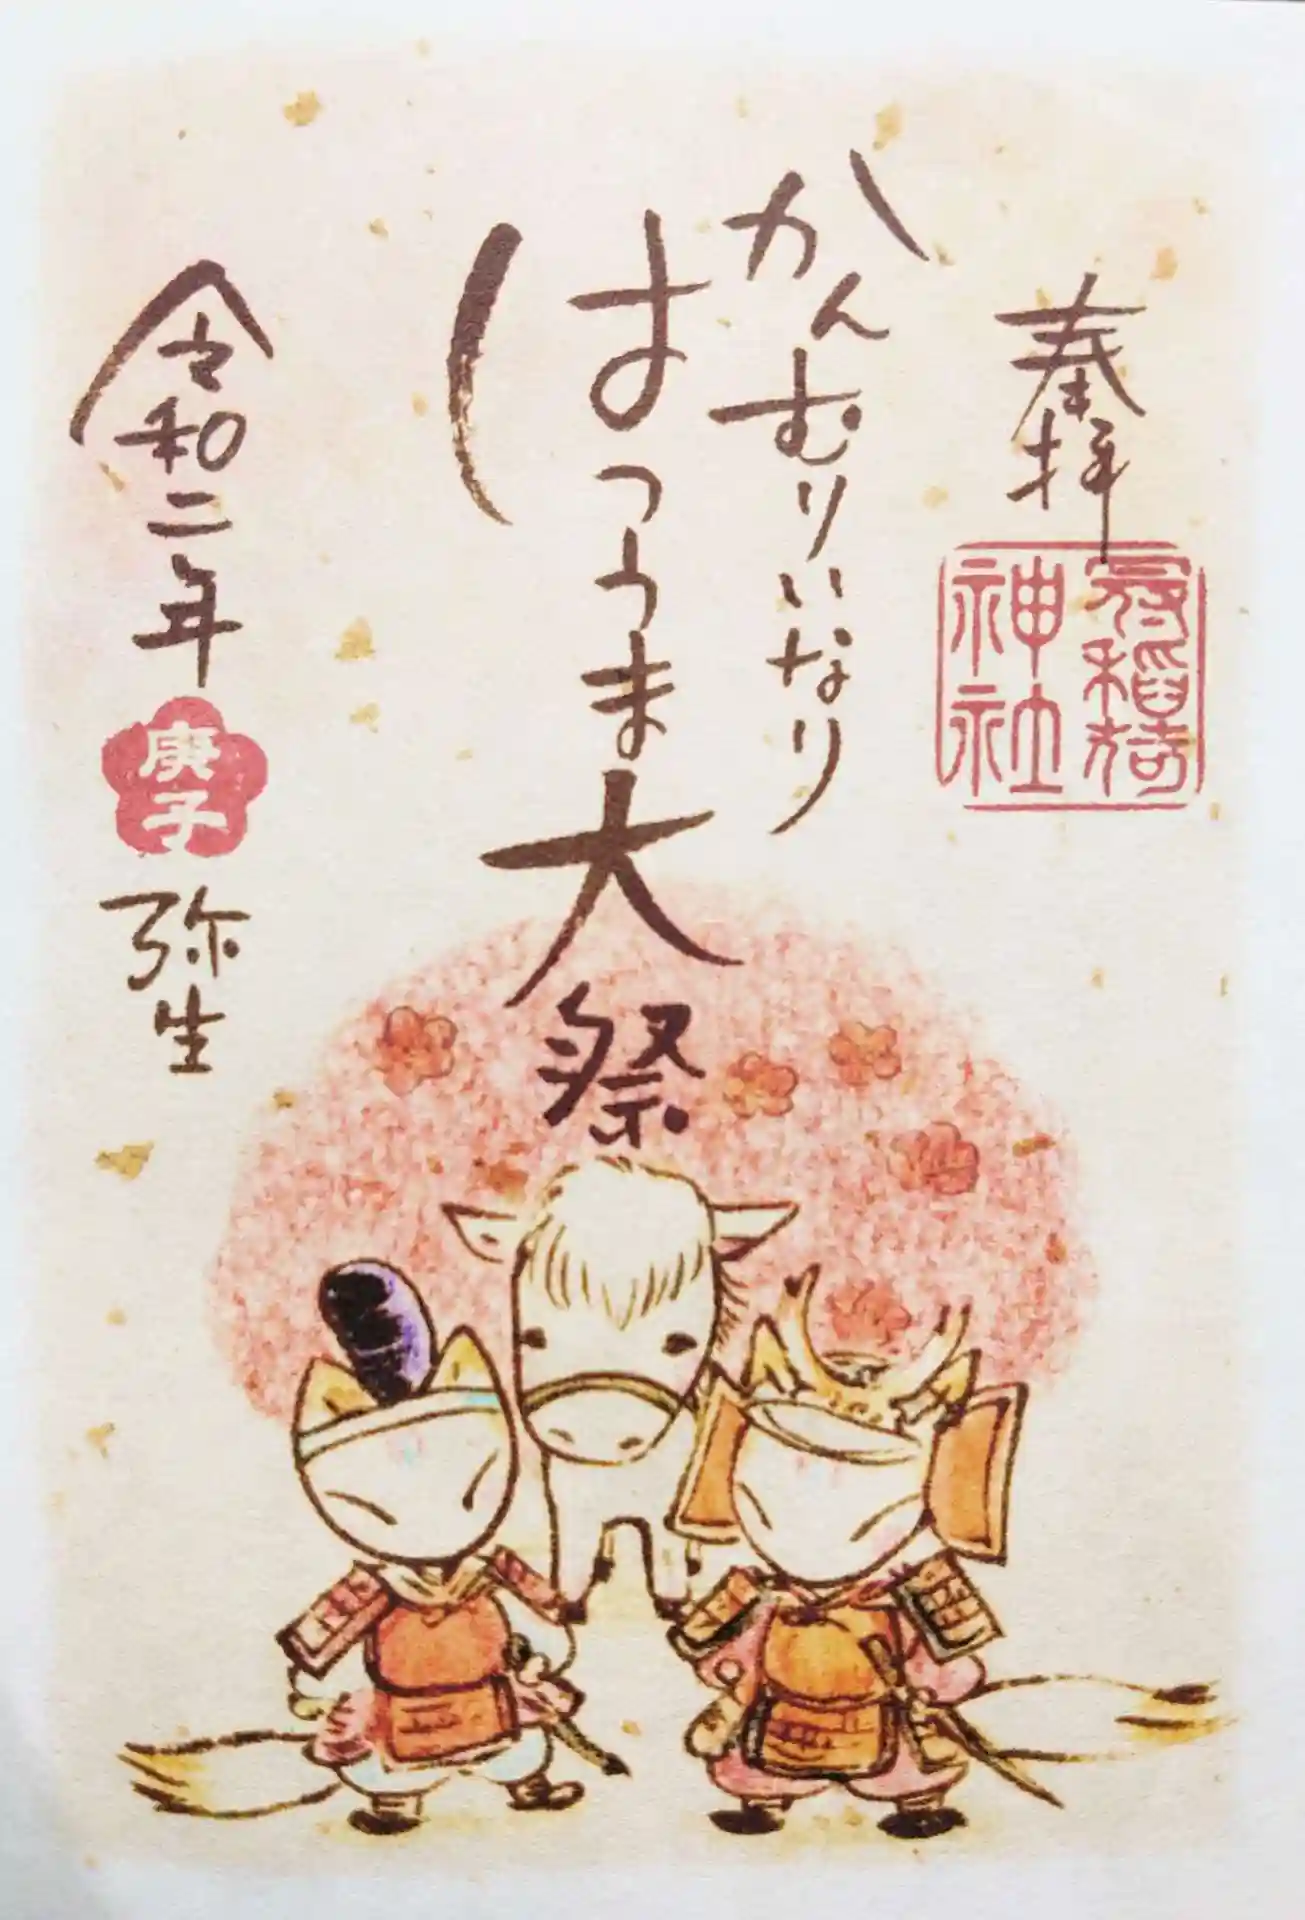 奉拝
冠稲荷
神社
かんむりいなり
はつうま大祭
令和二年
庚子
弥生